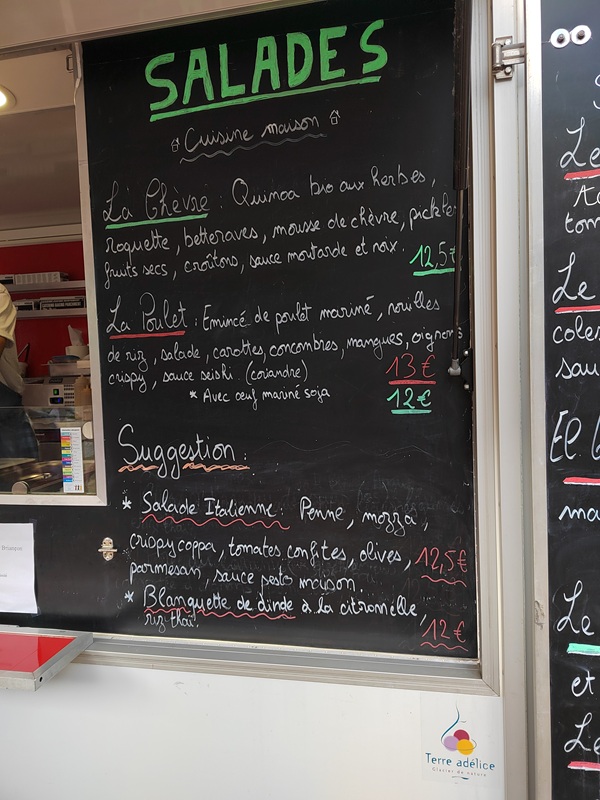 SALADES
Cuisine maison
La Chèvre : Quinoa bio aux herbes,
roquette, betteraves, mousse de chèvre,
fruits secs, croûtons, sauce moutarde et noix. 12,5€
La Poulet : Emincé de poulet mariné, nouilles
de riz, salade, carottes, concombres, mangues, oignons
crispy, sauce (coriandre) 13€
* Avec œuf mariné soja 12€
Suggestion :
* Salade Italienne : Penne, mozza,
crispy coppa, tomates confites, olives, 12,5€
parmesan, sauce pesto maison.
* Blanquette de dinde à la citronelle,
riz thaï. 12€
Terre adélice
Glacier de nature
Le
tom
Le
coles
sau
El
ma
Le
et
Le